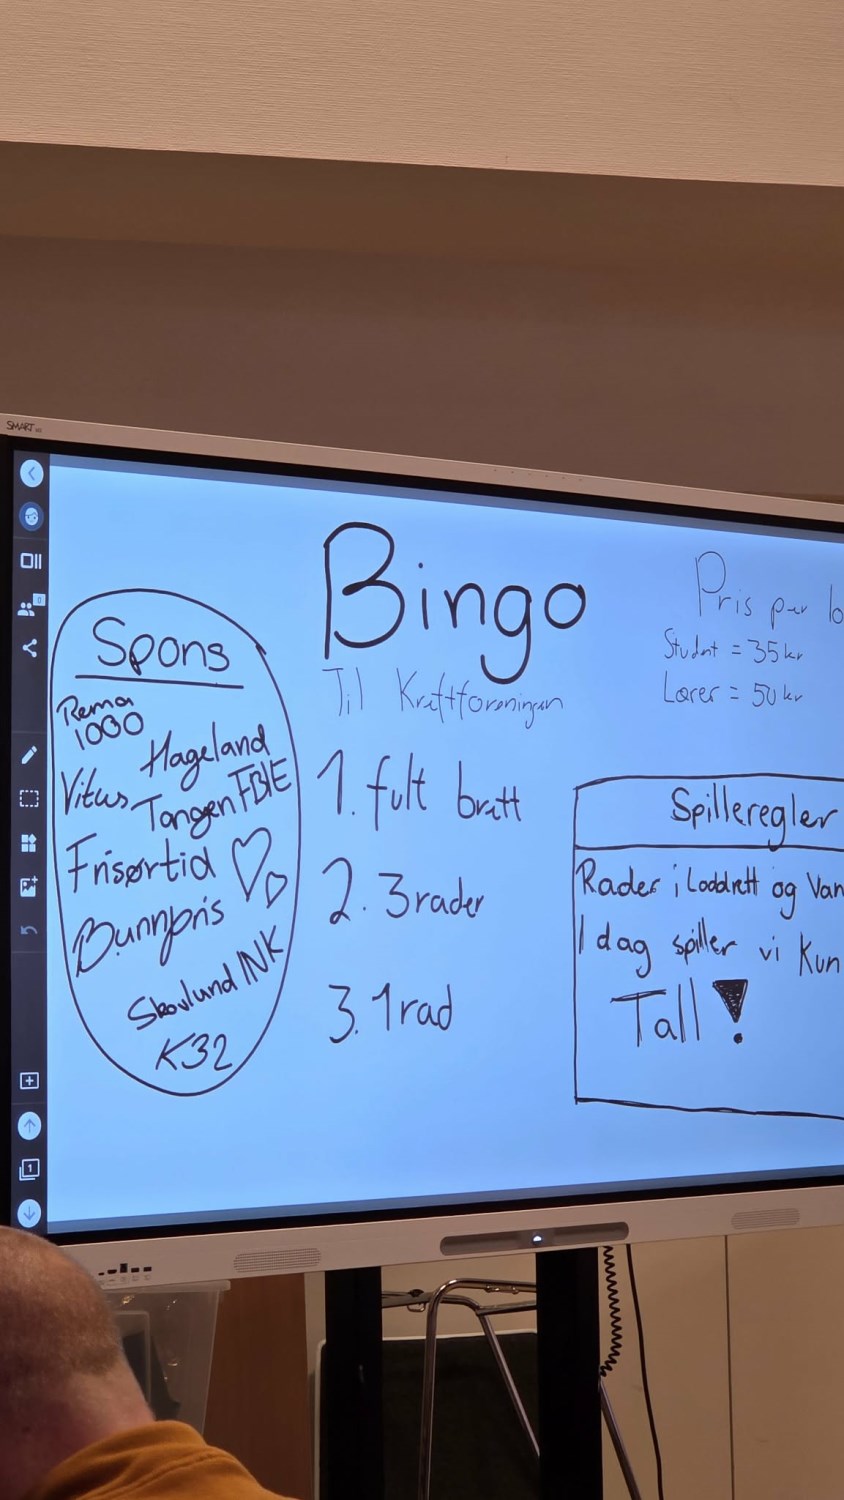 SMART
Bingo
Til Kreftforeningen
Pris per lo
Student = 35 kr
Lærer = 50 kr
Spons
Rema
1000
Hageland
Vitus
Tangen FBIE
Frisørtid
Bunnpris
Skovlund INK
K32
1. fult brett
2. 3 rader
3. 1 rad
Spilleregler
Rader i Loddrett og Van
I dag spiller vi Kun
Tall!
0
1